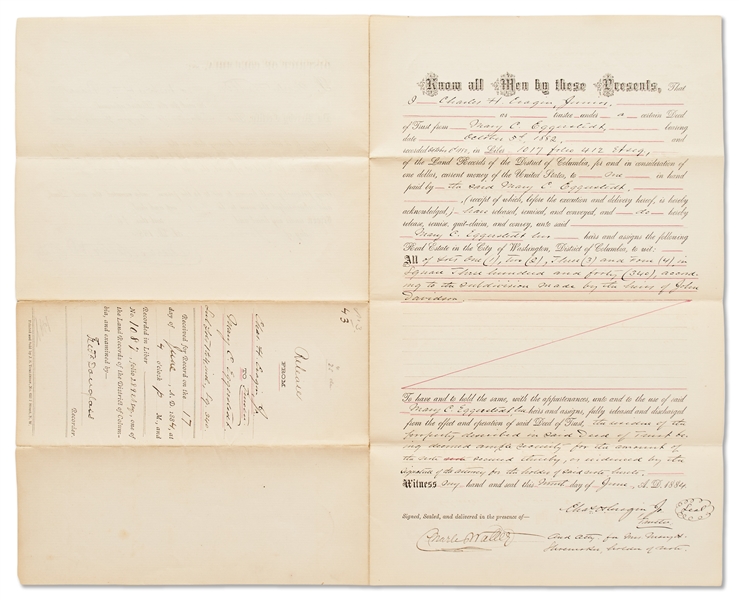 Know all Men by these Presents, That
I Charles H. Cragin, Junior,
or trustee under a certain Deed
of Trust from Mary C. Eggvoldt bearing
date October 3d, 1882, and
recorded October in Liber 1017 folio 412 et seq.,
of the Land Records of the District of Columbia, for and in consideration
of one dollar, current money of the United States, to me in hand
paid by the said Mary C. Eggvoldt,
(receipt of which, before the execution and delivery hereof, is hereby
acknowledged,) have released, remised, and conveyed, and do hereby
release, remise, quit-claim, and convey, unto said
Mary C. Eggvoldt her heirs and assigns the following
Real Estate in the City of Washington, District of Columbia, to wit:
All of Lots One (1), Two (2), Three (3) and Four (4) in
Square Three hundred and forty (340), accord-
ing to the subdivision made by the heirs of John
Davidson.
To have and to hold the same, with the appurtenances, unto and to the use of said
Mary C. Eggvoldt her heirs and assigns, fully released and discharged
from the effect and operation of said Deed of Trust, the residue of the
property described in said Deed of Trust be-
ing deemed ample security for the amount of
the secured thereby, as evidenced by the
signature of the attorney for the holder of said note hereto.
Witness my hand and seal this day of June, A. D. 1884
Signed, Sealed, and delivered in the presence of—
Chas H Cragin Jr. Seal
Trustee
Charles Walter
And atty for Mrs Mary H.
Shoemaker, holder of note
43
Release
FROM
Chas. H. Cragin Jr.
Trustee
TO
Mary C. Eggvoldt
Received for Record on the 17
day of June, A. D. 1884, at
4 o'clock P. M., and
Recorded in Liber
No. 1087, folio 289 et seq., one of
the Land Records of the District of Colum-
bia, and examined by
Fredk Douglass
Recorder.